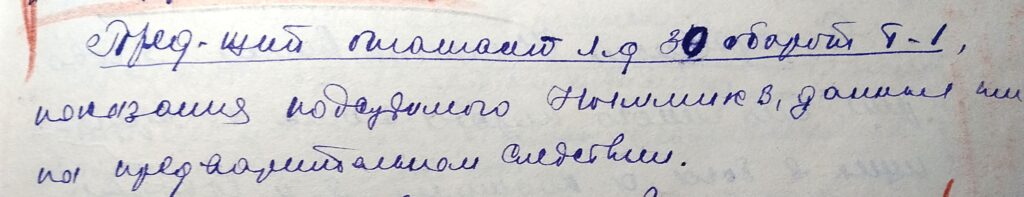 Пред-щий оглашает л.д 30 оборот Т-1,
показания подсудимого Ныммик Э, данные им
на предварительном следствии.